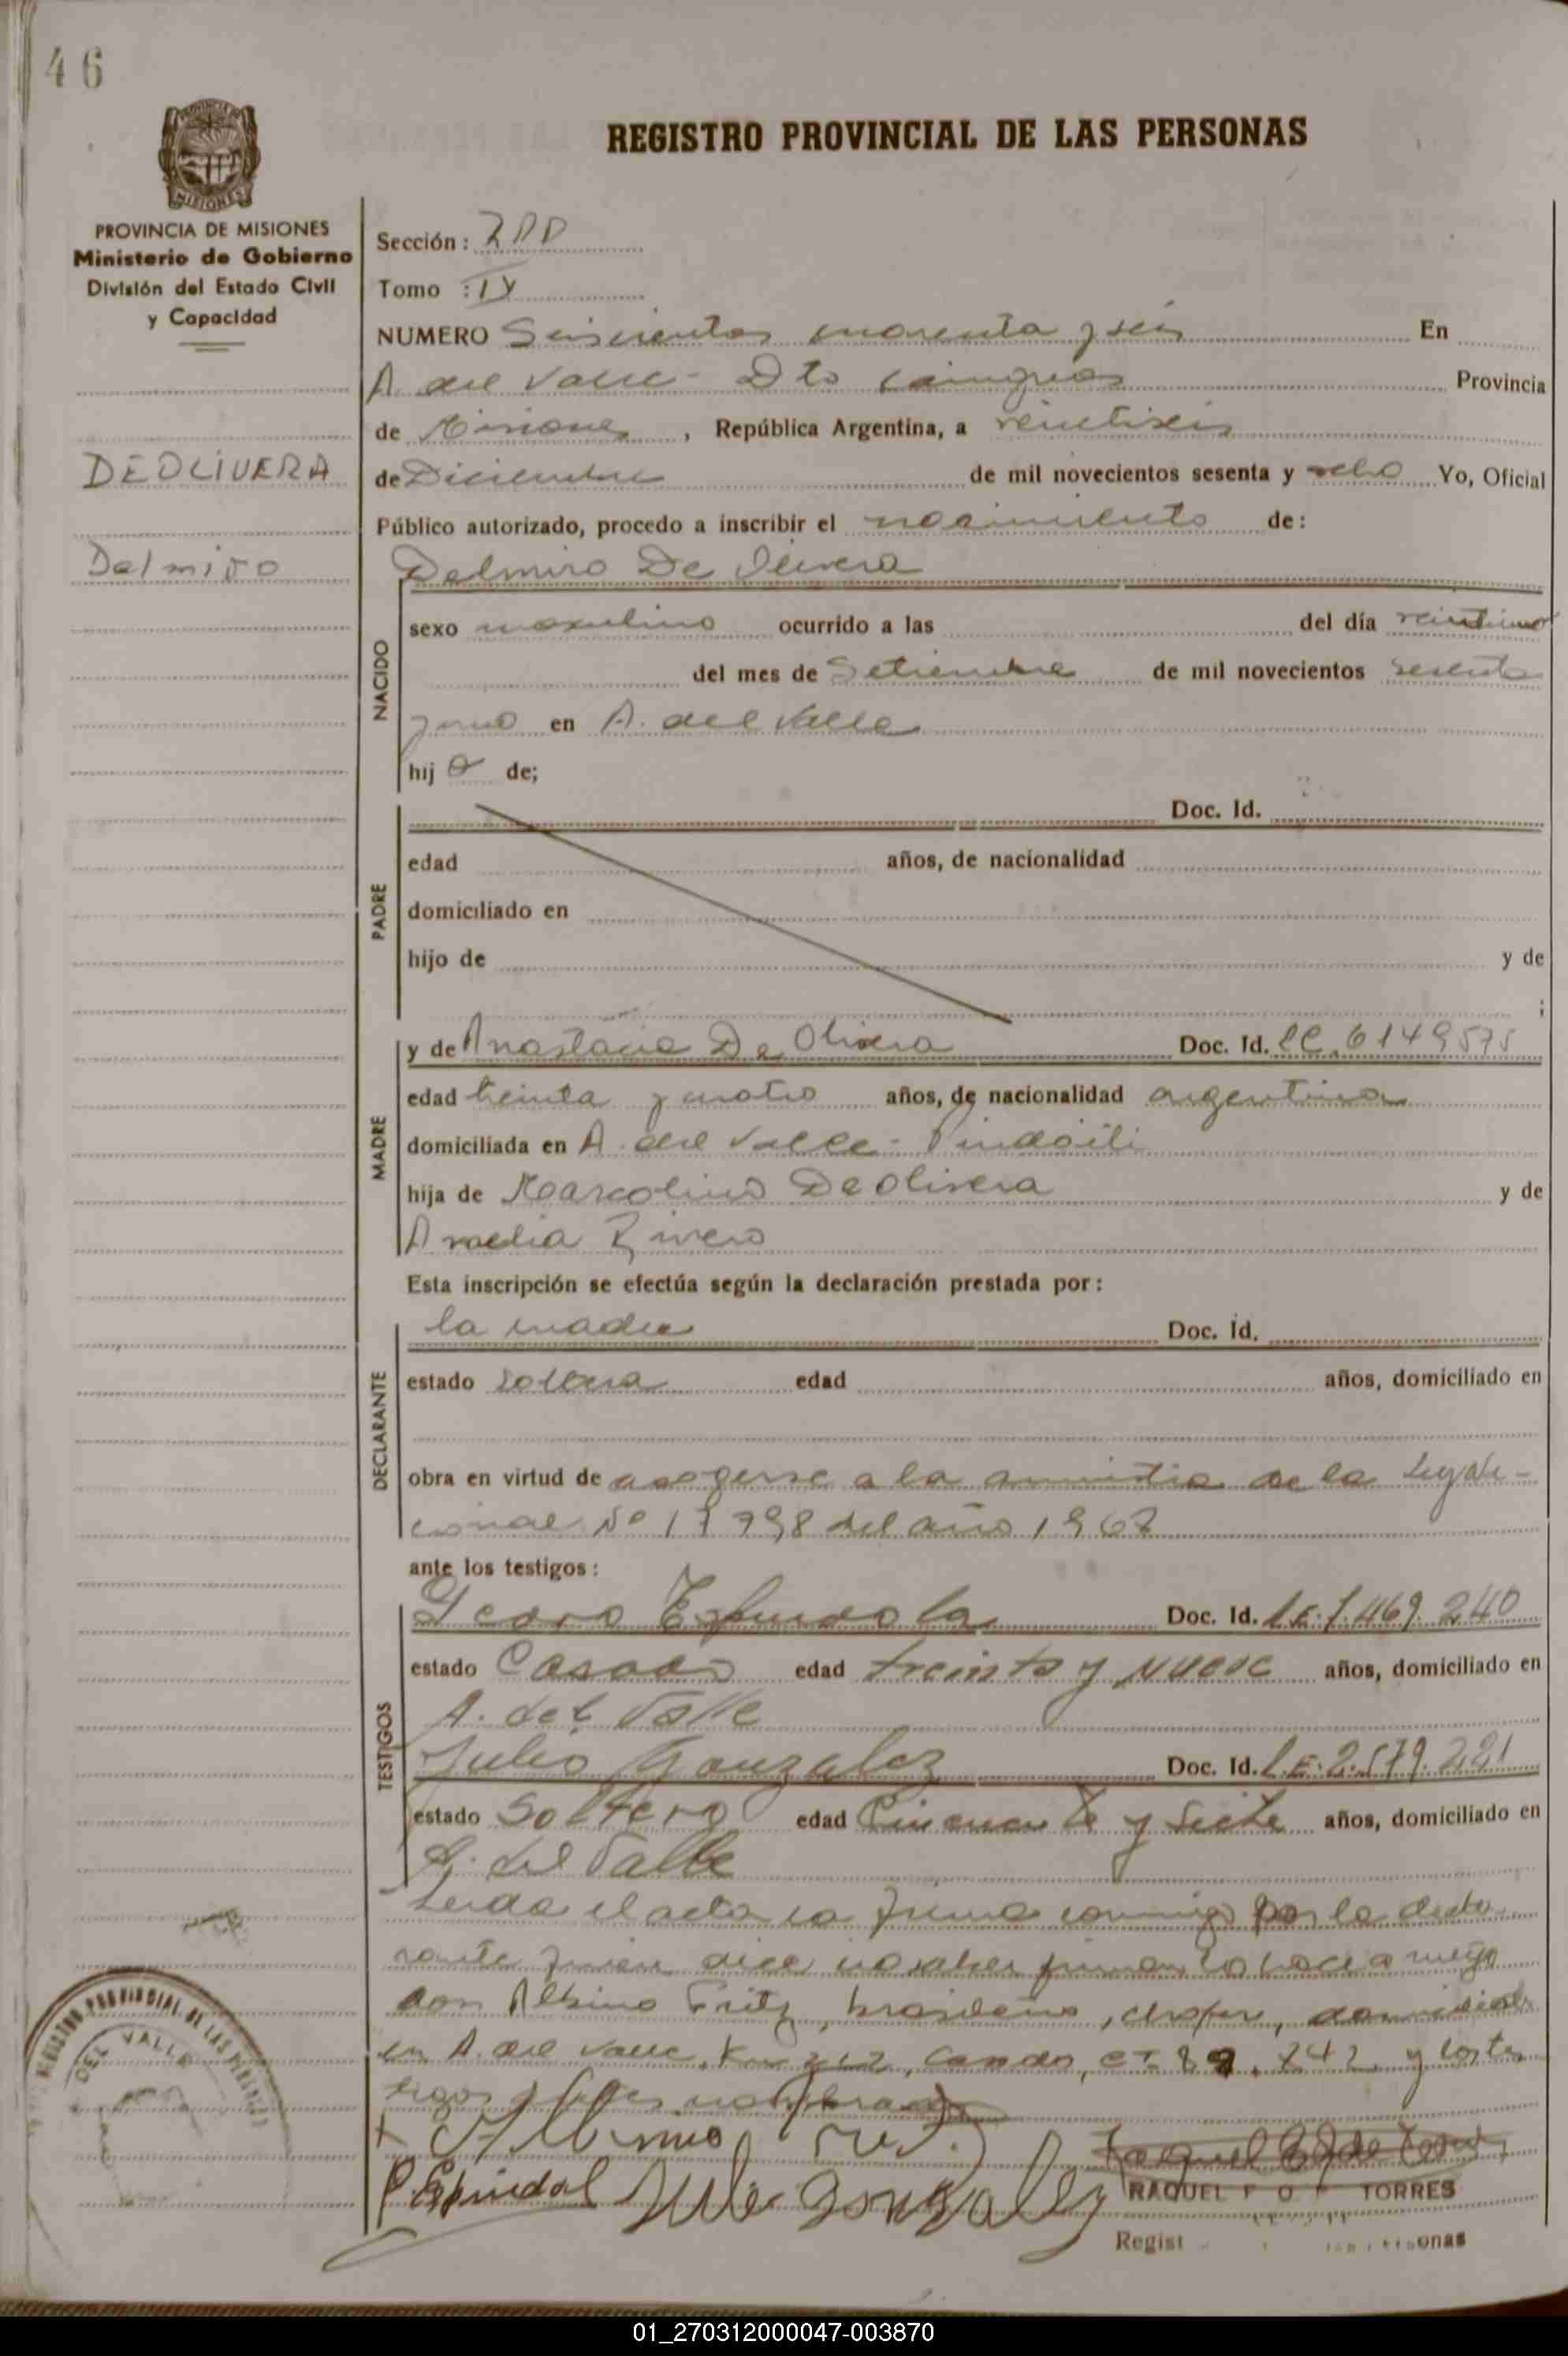 46
REGISTRO PROVINCIAL DE LAS PERSONAS
PROVINCIA DE MISIONES
Ministerio de Gobierno
División del Estado Civil
y Capacidad
MISIONES
Sección:
Tomo :
NUMERO Seiscientos cuarenta y seis En
A. del Valle - Dto Cainguas Provincia
de Misiones, República Argentina, a veintiseis
de Diciembre de mil novecientos sesenta y ocho Yo, Oficial
Público autorizado, procedo a inscribir el nacimiento de:
DEOLIVERA
Delmiro
Delmiro De Olivera
NACIDO
sexo masculino ocurrido a las del día veintiuno
del mes de Setiembre de mil novecientos sesenta
y uno en A. del Valle
hijo de;
PADRE
Doc. Id.
edad años, de nacionalidad
domiciliado en
hijo de y de
;
MADRE
y de Anastacia De Olivera Doc. Id. LC. 6149575
edad treinta y cuatro años, de nacionalidad argentina
domiciliada en A. del Valle - Pindaiti
hija de Marcolino De Olivera y de
Amelia Rivero
Esta inscripción se efectúa según la declaración prestada por:
DECLARANTE
la madre Doc. Id.
estado soltera edad años, domiciliado en
obra en virtud de acogerse a la amnistia de la
No del año 1967
ante los testigos:
TESTIGOS
Pedro Espindola Doc. Id. L.E. 7.469.240
estado Casado edad treinta y nueve años, domiciliado en
A. del Valle
Julio Gonzalez Doc. Id. L.E. 2.579.221
estado Soltero edad Cincuenta y siete años, domiciliado en
A. del Valle
Leida el acta la firma conmigo por la decla
rante quien dice no saber firmar lo hace a ruego
don Albino Fritz, brasileño, chofer, domiciliado
en A. del Valle, Km 212, Casado, y los tes
tigos nombrados
REGISTRO PROVINCIAL DE LAS PERSONAS
DEL VALLE
Albino
P. Espindola Julio Gonzalez
RAQUEL F O TORRES
Regist onas
01_270312000047-003870